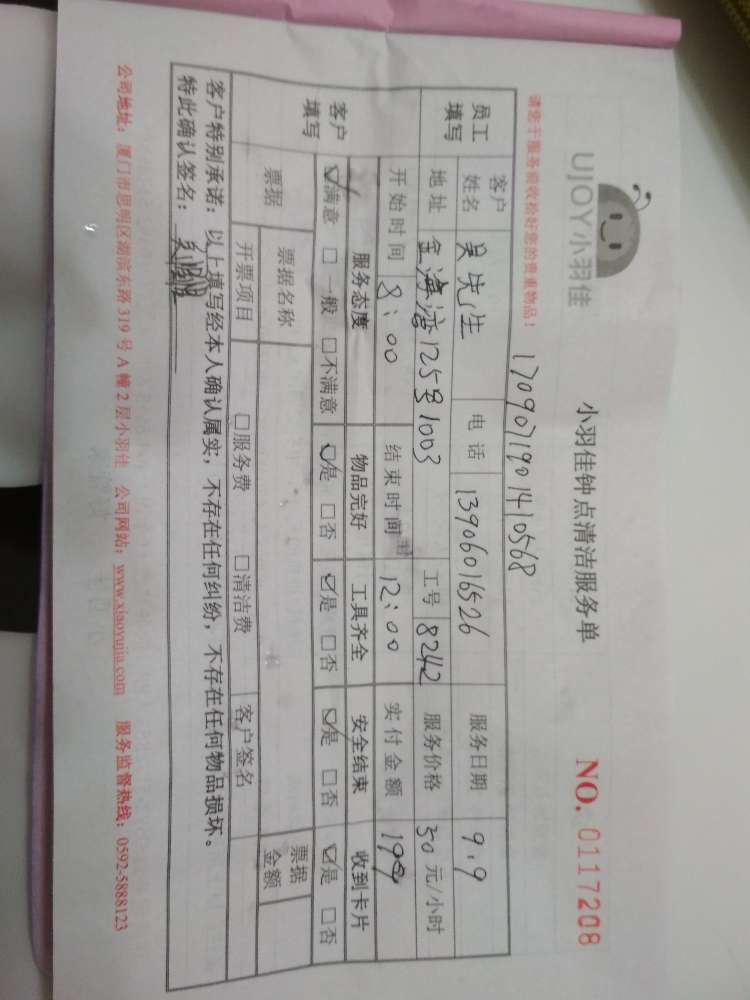 UJOY小羽佳
小羽佳钟点清洁服务单
NO. 0117208
请您于服务前收拾好您的贵重物品！
170907190141 0568
员工填写
客户姓名 吴先生 电话 13906016526 服务日期 9.9
地址 金海湾125号1003 工号 8242 服务价格 50元/小时
开始时间 8:00 结束时间 12:00 实付金额 199
客户填写
服务态度 物品完好 工具齐全 安全结束 收到卡片
☑满意 □一般 □不满意 ☑是 □否 ☑是 □否 ☑是 □否 ☑是 □否
票据 票据名称 票据金额
开票项目 □服务费 □清洁费 客户签名
客户特别承诺：以上填写经本人确认属实，不存在任何纠纷，不存在任何物品损坏。
特此确认签名：
公司地址：厦门市思明区湖滨东路319号A幢2层小羽佳 公司网站：www.xiaoyujia.com 服务监督热线：0592-5888123